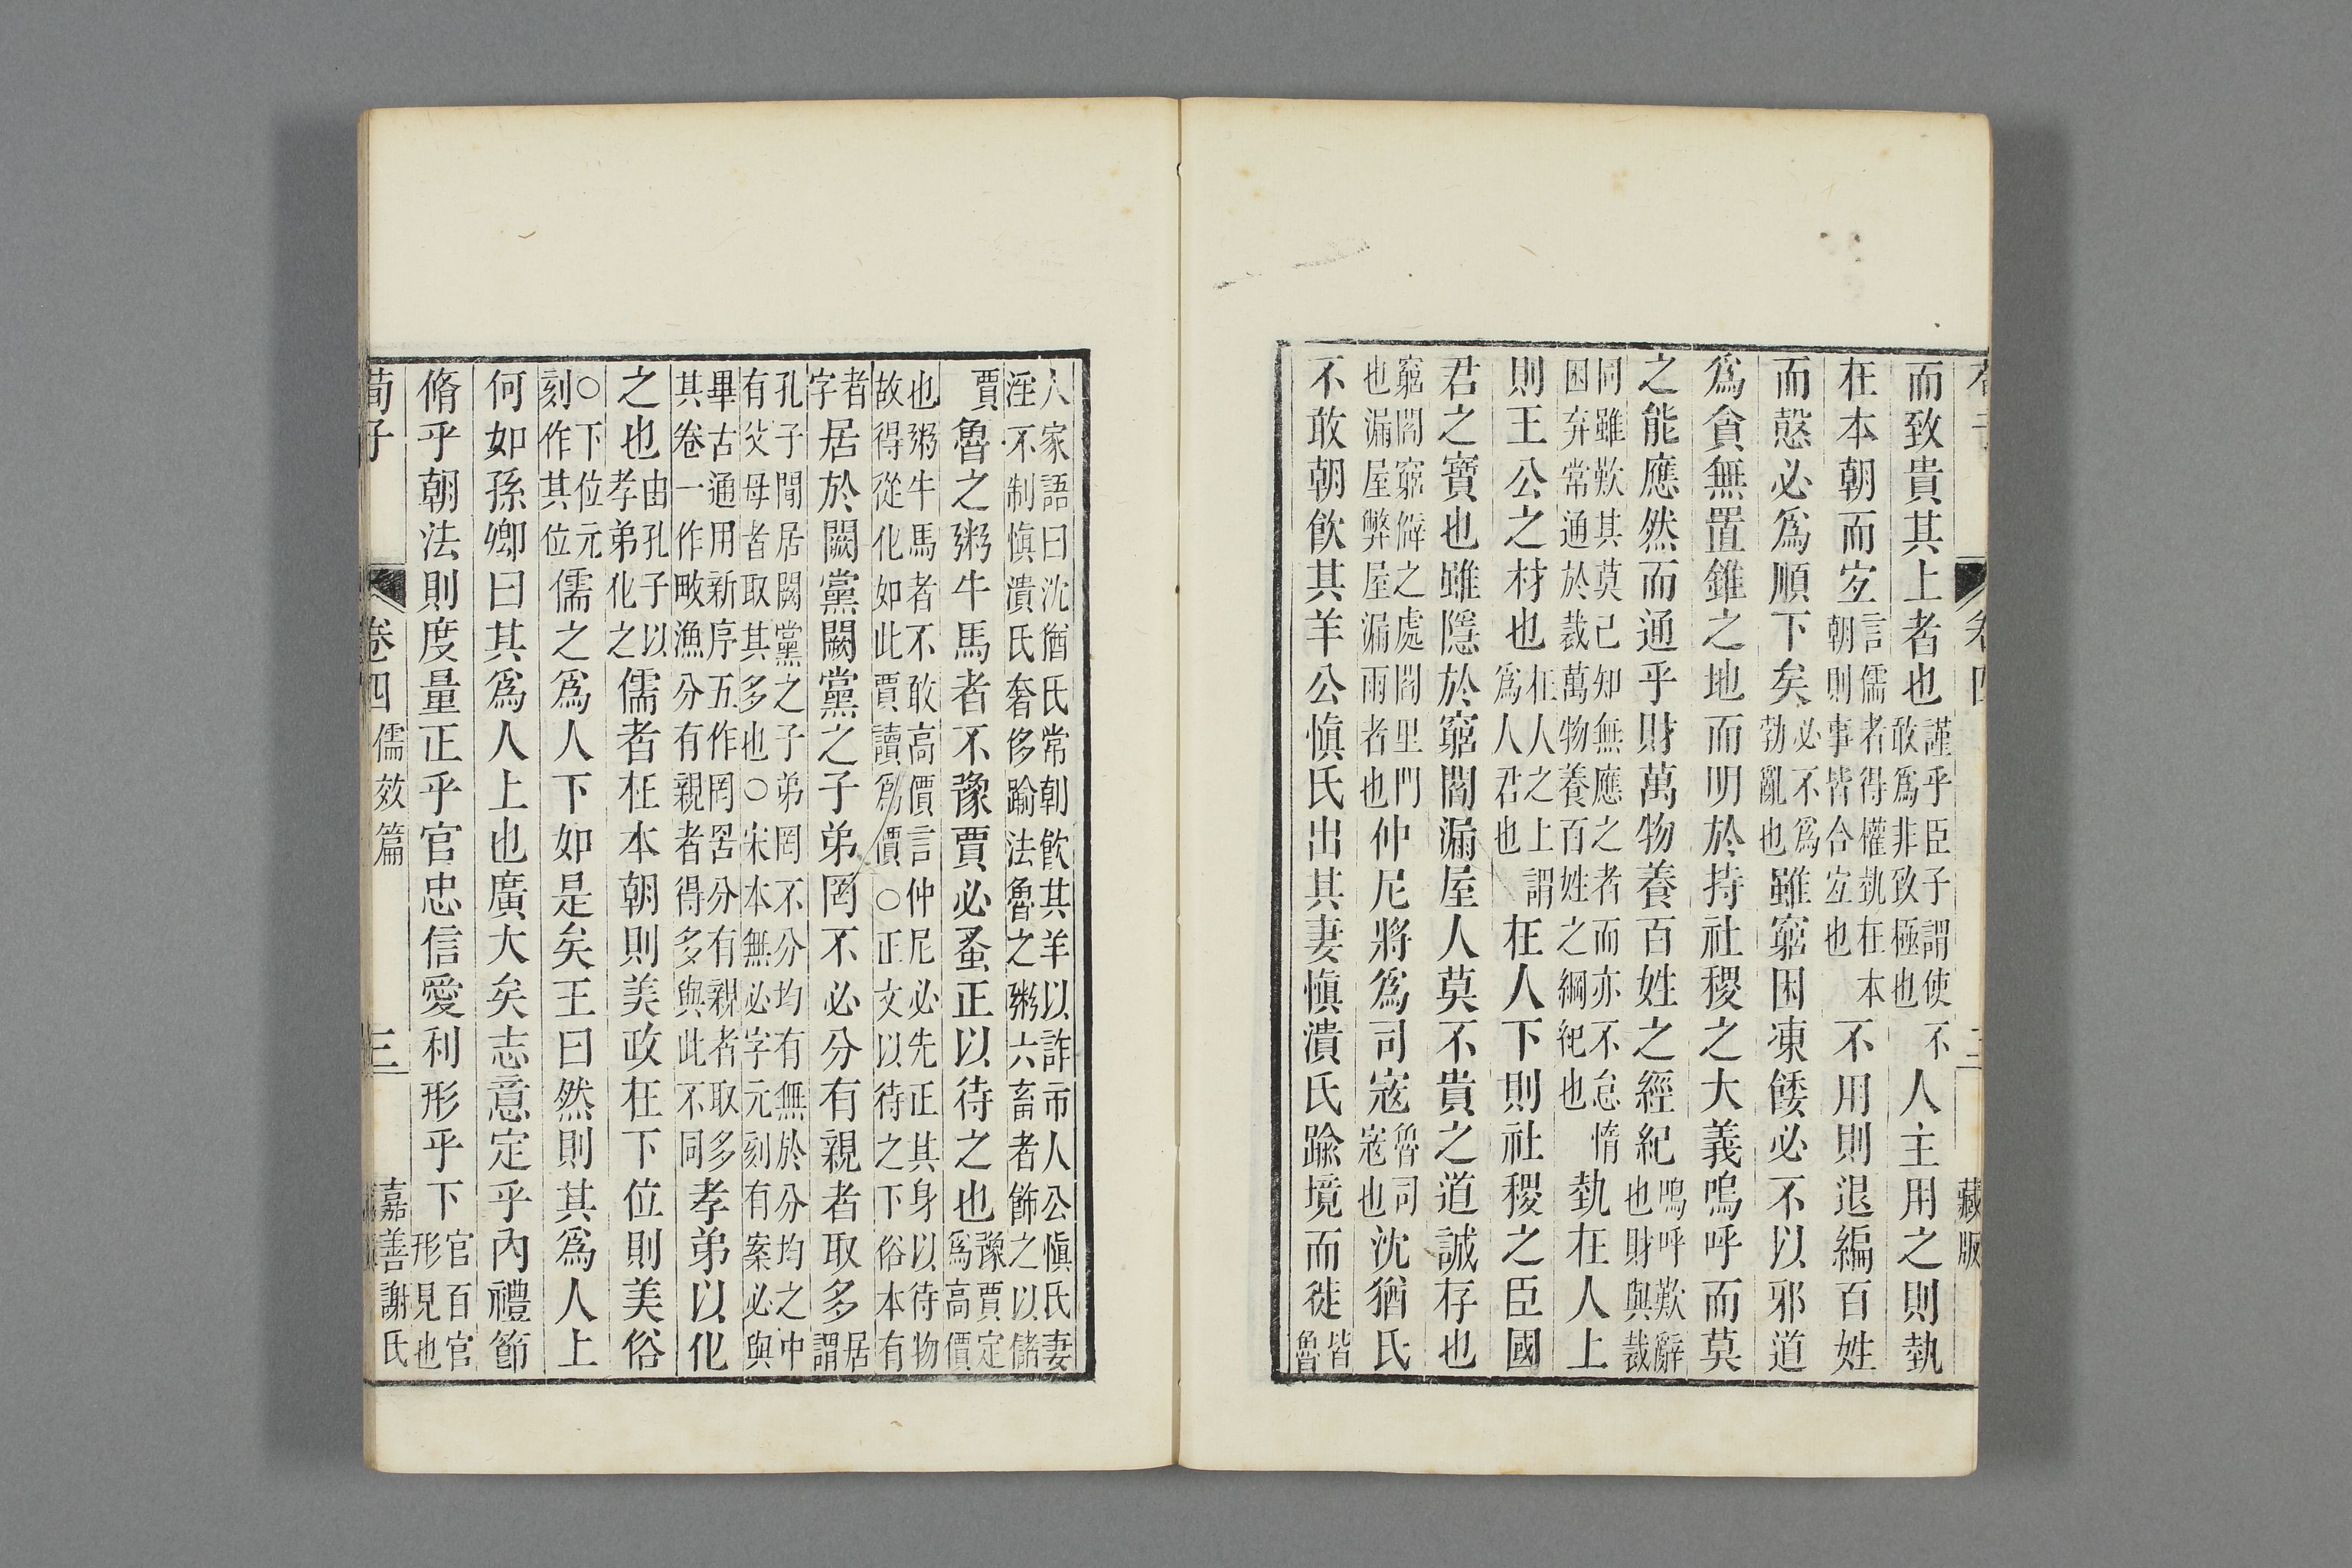 卷四 二 藏版
而致貴其上者也謹乎臣子謂使不敢爲非致極也人主用之則埶
在本朝而宐言儒者得權埶在本朝則事皆合宐也不用則退編百姓
而慤必爲順下矣必不爲勃亂也雖窮困凍餧必不以邪道
爲貪無置錐之地而明於持社稷之大義嗚呼而莫
之能應然而通乎財萬物養百姓之經紀嗚呼歎辭也財與裁
同雖歎其莫己知無應之者而亦不怠惰困弃常通於裁萬物養百姓之綱紀也埶在人上
則王公之材也在人人之上謂爲人人君也在人下則社稷之臣國
君之寶也雖隱於窮閻漏屋人莫不貴之道誠存也
窮閻窮僻之處閻里門也漏屋弊屋漏雨者也仲尼將爲司寇魯司寇也沈猶氏
不敢朝飲其羊公愼氏出其妻愼潰氏踰境而徙皆魯
人家語曰沈猶氏常朝飲其羊以詐市人公愼氏妻淫不制愼潰氏奢侈踰法魯之粥六畜者飾之以儲
賈魯之粥牛馬者不豫賈必蚤正以待之也豫賈定爲高價
也粥牛馬者不敢高價言仲尼必先正其身以待物故得從化如此賈讀爲價○正文以待之下俗本有
者字居於闕黨闕黨之子弟罔不必分有親者取多居謂
孔子閒居闕黨之子弟罔不分均有無於分均之中有父母者取其多也○宋本無必字元刻有案必與
畢古通用新序五作罔罟分有親者取多其卷一作畋漁分有親者得多與此不同孝弟以化
之也由孔子以孝弟化之儒者在本朝則美政在下位則美俗
○下位元刻作其位儒之爲人下如是矣王曰然則其爲人上
何如孫卿曰其爲人上也廣大矣志意定乎內禮節
脩乎朝法則度量正乎官忠信愛利形乎下官百官形見也
荀子 卷四 儒效篇 三 嘉善謝氏